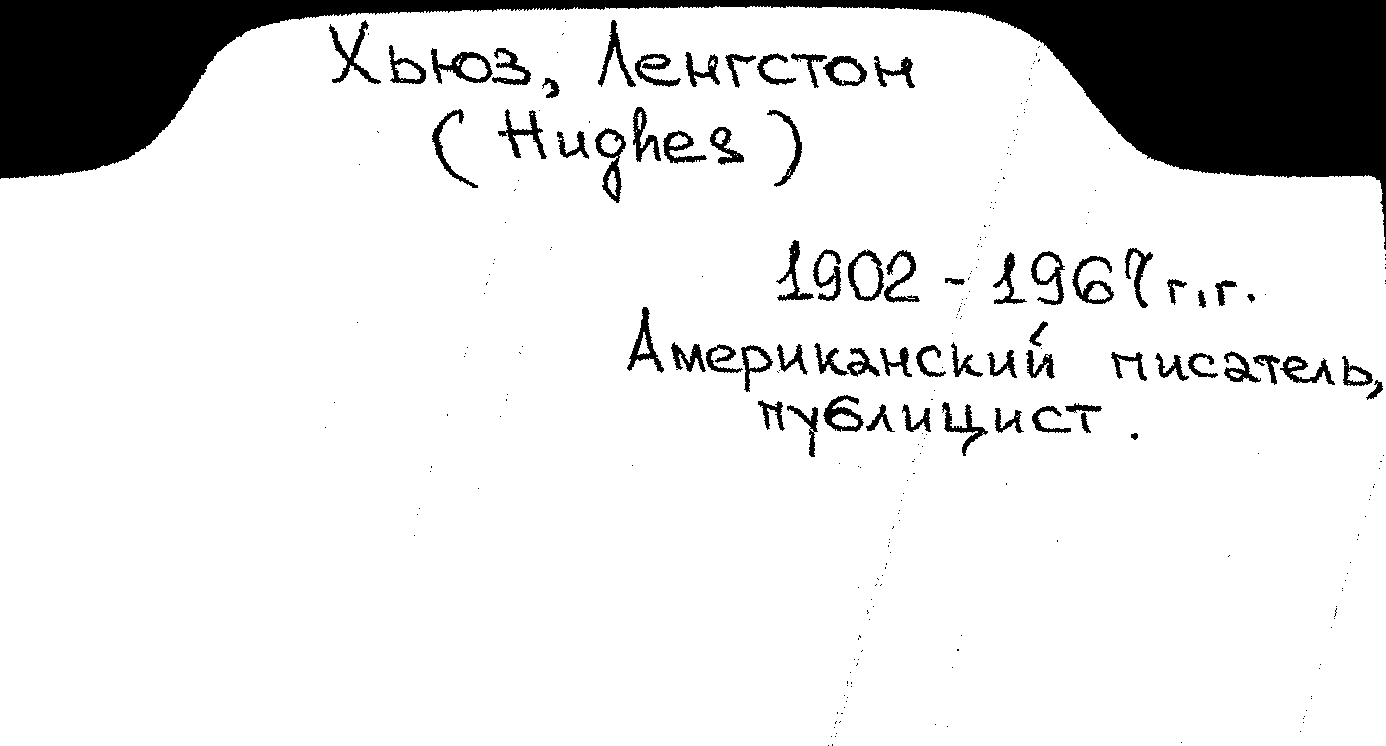 Хьюз, Ленгстон
(Hughes)
1902 - 1967 г.г.
Американский писатель,
публицист.